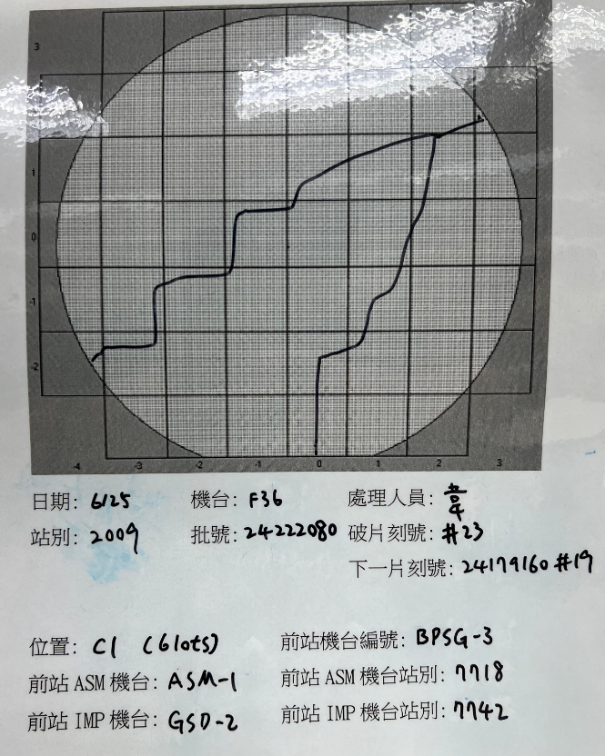 3
1
0
-1
-2
-4 -3 -2 -1 0 1 2 3
日期: 6/25 機台: F36 處理人員: 韋
站別: 2009 批號: 24222080 破片刻號: #23
下一片刻號: 24179160 #19
位置: C1 (6lots) 前站機台編號: BPSG-3
前站 ASM 機台: ASM-1 前站 ASM 機台站別: 7718
前站 IMP 機台: GSD-2 前站 IMP 機台站別: 7742